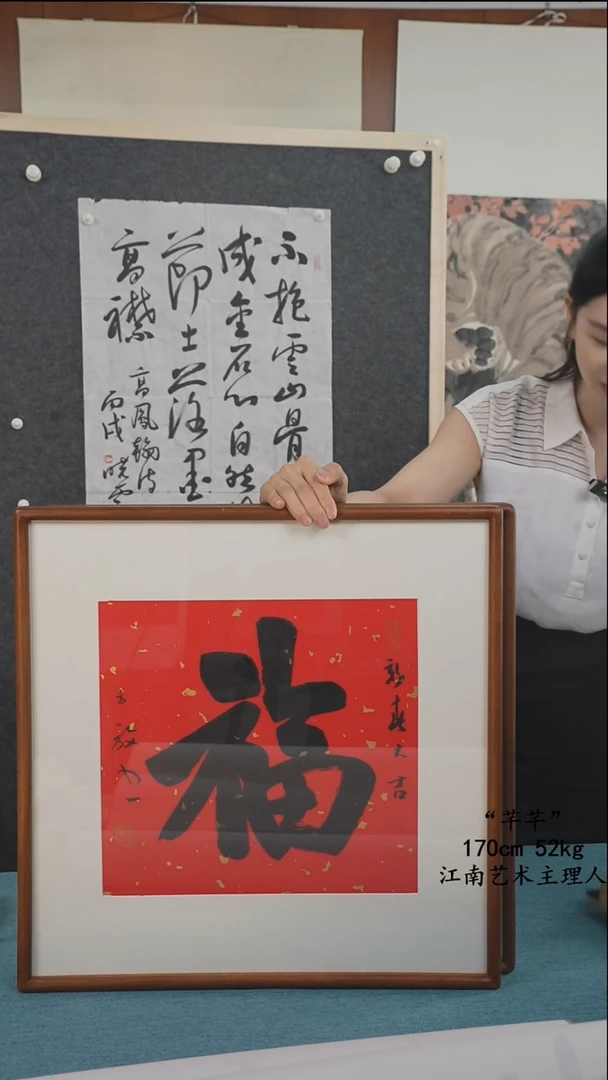 不抱雲山骨
成金石心自然
節士落墨
高襟
高鳳翰诗
丙戌
新春大吉
福
“芊芊”
170cm 52kg
江南艺术主理人